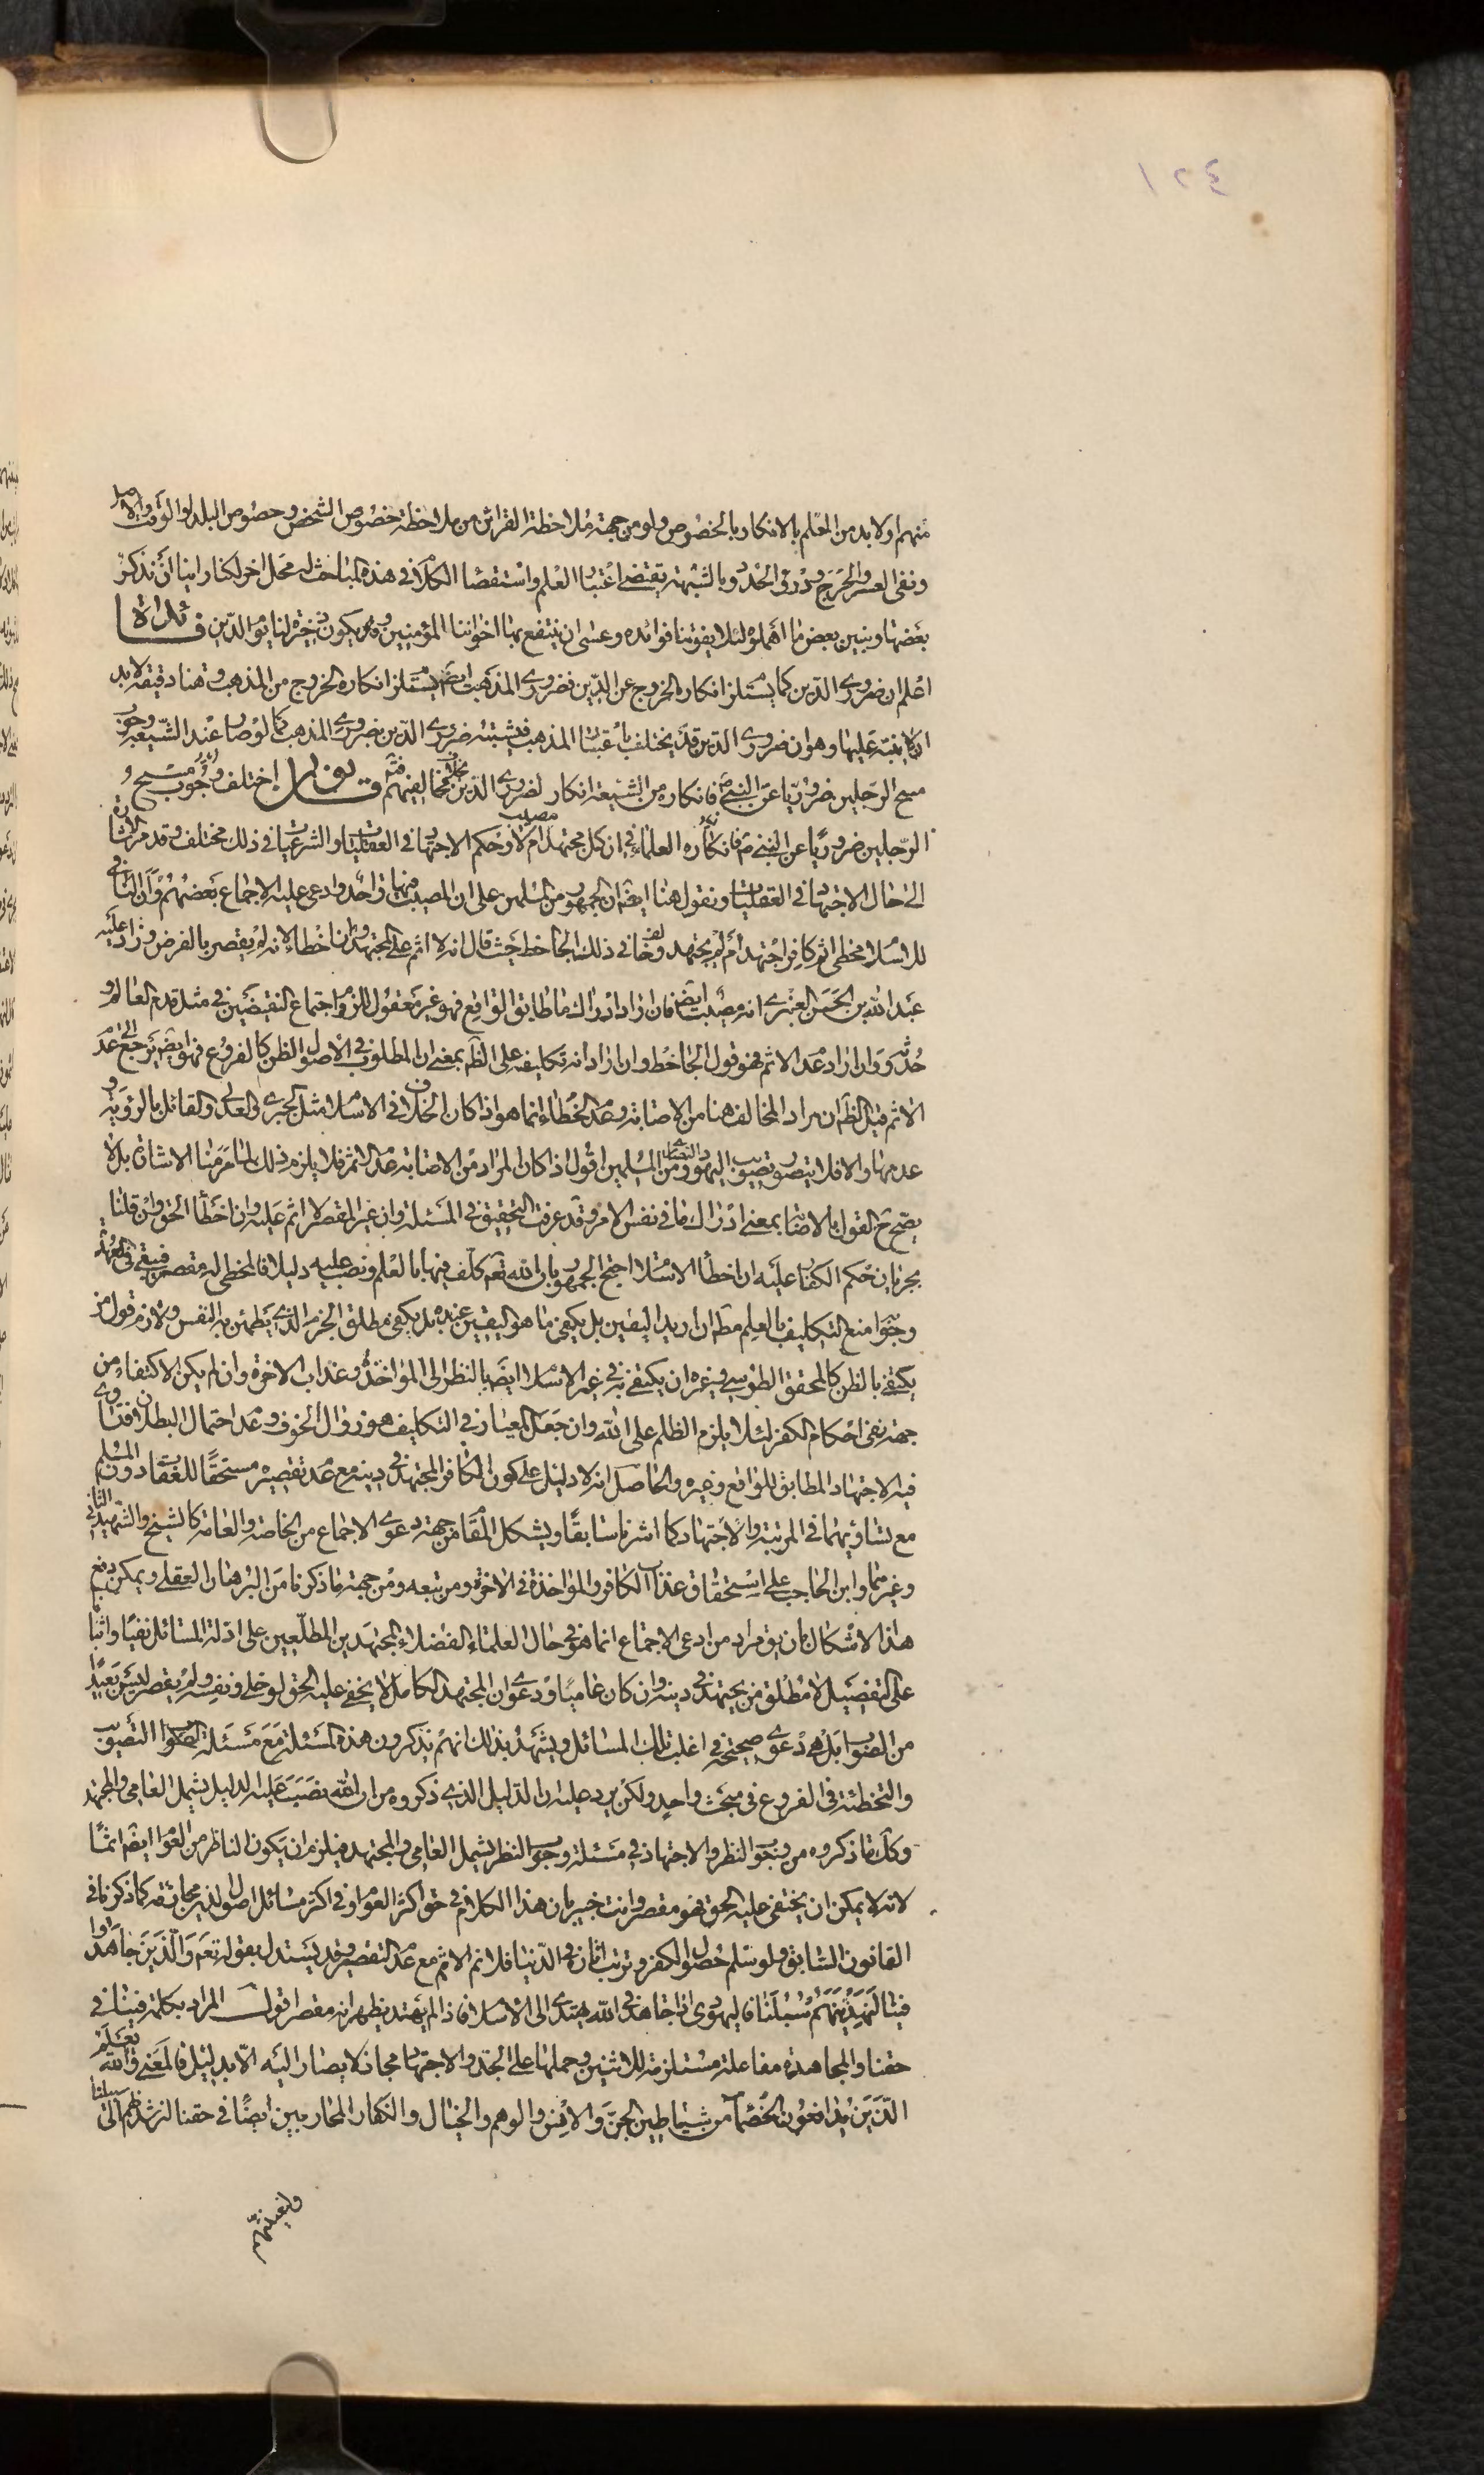 ١٢٤
منهم او لا بد من العلم بالانكار بالخصوص ولو من جهة ملاحظة القرائن من ملاحظة خصوص الشخص وخصوص البلد او الوقت والاصل
ونفى العسر والحرج ودرؤ الحدود بالشبهة يقتضى اعتبار العلم واستقصاء الكلام فى هذه المباحث له محل اخر لكنا راينا ان نذكر
بعضها ونبين بعض ما اهملوه لئلا يفوتنا فوائده وعسى ان ينتفع بها اخواننا المؤمنين ويكون ذخيرة لنا يوم الدين فائدة
اعلم ان ضرورى الدين كما يستلزم انكاره الخروج عن الدين فضرورى المذهب ايضا يستلزم انكاره الخروج من المذهب وهنا دقيقة لا بد
ان ينبه عليها وهو ان ضرورى الدين قد يختلف باعتبار المذهب فيشتبه ضرورى الدين بضرورى المذهب كما لو صار عند الشيعة وجوب
مسح الرجلين ضروريا عن النبى ص فانكاره من الشيعة انكار لضرورى الدين بخلاف مخالفيهم فتم قانون اختلف وجوب مسح و
الرجلين ضروريا عن النبى ص فانكاره العلماء فى ان كل مجتهد مصيب ام لا وحكم الاجتهاد فى العقليات والشرعيات فى ذلك مختلف وقد مر الاشارة
الى حال الاجتهاد فى العقليات ونقول هنا ايضا ان الجمهور من المسلمين على ان المصيب فيها واحد وادعى عليه الاجماع بعضهم وان النافى
للاسلام مخطى اثم كافر اجتهد ام لم يجتهد وخالف فى ذلك الجاحظ حيث قال انه لا اثم على المجتهد وان اخطا لانه لم يقصر بالفرض وزاد عليه
عبد الله بن الحسن العنبرى انه مصيب ايضا فان اراد ادراك ما طابق الواقع فهو غير معقول للزوم اجتماع النقيضين فى مثل قدم العالم و
حدثه وان اراد عدم الاثم فهو قول الجاحظ وان اراد انه تكليفه على الظن بمعنى ان المطلوب فى الاصول الظن كالفروع فهو ايضا يرجع الى عدم
الاثم قيل الظ ان مراد المخالف هنا من الاصابة وعدم الخطاء انما هو اذا كان الخلاف فى الاسلام مثل الجبرى والعدلى والقائل بالرؤية و
عدمها والا فلا يتصور تصويب اليهود والنصارى من المسلمين اقول اذا كان المراد من الاصابة عدم الاثم فلا يلزم ذلك لما مر منا الاشارة بل لا
يصح ح القول بالاصابة بمعنى ادراك ما فى نفس الامر وقد عرفت التحقيق فى المسئلة وان غير المقصر لا اثم عليه وان اخطأ الحق وان قلنا
بجريان حكم الكفار عليه ان اخطأ الاسلام احتج الجمهور بان الله تعه كلف فيها بالعلم ونصب عليه دليلا فالمخطى له مقصر فيبقى فى العهدة
وجوابه منع التكليف بالعلم مطه ان اريد اليقين بل يكفى ما هو اليقين عنده بل يكفى مطلق الجزم الذى يطمئن به النفس ولازم قول من
يكتفى بالظن كالمحقق الطوسى وغيره ان يكتفى به فى غير الاسلام ايضا بالنظر الى المؤاخذة وعذاب الاخرة وان لم يكن الاكتفاء من
جهة نفى احكام الكفر لئلا يلزم الظلم على الله وان جعل المعيار فى التكاليف هو زوال الخوف وعدم احتمال البطلان فتساوى
فيه الاجتهاد المطابق للواقع وغيره والحاصل انه لا دليل على كون الكافر المجتهد فى دينه مع عدم تقصيره مستحقا للعقاب دون المسلم
مع تساويهما فى المرتبة والاجتهاد كما اشرنا سابقا ويشكل المقام من جهة دعوى الاجماع من الخاصة والعامة كالشيخ والشهيد الثانى
وغيرهما وابن الحاجب على استحقاق عذاب الكافر والمؤاخذة فى الاخرة ومن تبعه ومن جهة ما ذكرنا من البرهان العقلى ويمكن دفع
هذا الاشكال بان يق مراد من ادعى الاجماع انما هو فى حال العلماء الفضلاء المجتهدين المطلعين على ادلة المسائل نفيا واثباتا
على التفصيل لا مطلق من يجتهد فى دينه وان كان عاميا ودعوى ان المجتهد الكامل لا يخفى عليه الحق لو خلى ونفسه ولم يقصر ليس ببعيد
من الصواب بل هى دعوى صحيحة فى اغلب تلك المسائل ويشهد بذلك انهم يذكرون هذه المسئلة مع مسئلة التصويب
والتخطئة فى الفروع فى مبحث واحد ولكن يرد عليه ان الدليل الذى ذكروه من ان الله نصب عليه الدليل يشمل العامى والمجتهد
وكل ما ذكروه من وجوب النظر والاجتهاد فى مسئلة وجوب النظر يشمل العامى والمجتهد فيلزم ان يكون الناظر من العوام ايضا اثما
لانه لا يمكن ان يختفى عليه الحق فهو مقصر وانت خبير بان هذا الكلام فى حق اكثر العوام وفى اكثر مسائل اصول الدين مجازفة كما ذكرنا فى
القانون السابق ولو سلم حصول الكفر وترتب اثاره فى الدنيا فلا نم الاثم مع عدم التقصير وقد يستدل بقوله تعه والذين جاهدوا
فينا لنهدينهم سبلنا فاليهودى اذا جاهد فى الله يهتدى الى الاسلام فاذا لم يهتد يظهر انه مقصر اقول المراد بكلمة فينا فى
حقنا والمجاهدة مفاعلة مستلزمة للاثنين وحملها على الجد والاجتهاد مجاز لا يصار اليه الا بدليل فالمعنى والله يعلم
الذين يدافعون الخصماء من شياطين الجن والانس والوهم والخيال والكفار المحاربين ايضا فى حقنا لنرشدنهم الى سبلنا